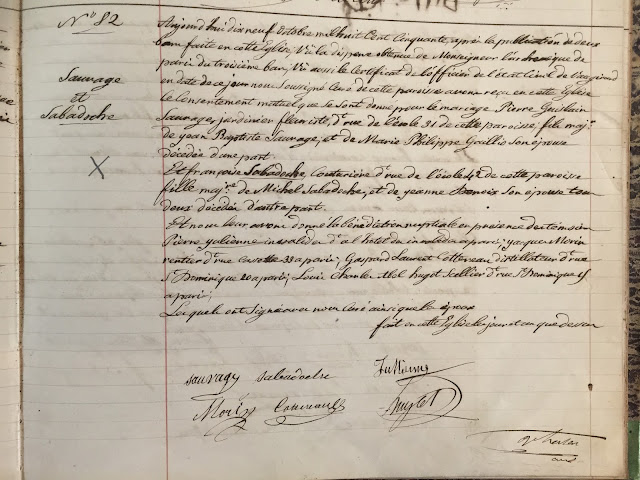 N° 82
Sauvage
et
Sabadoche
Aujourd'hui dix neuf octobre mil huit cent Cinquante, après la publication de deux
bans faite en cette Eglise, Vu la dispense obtenue de Monseigneur l'archevêque de
paris du troisième ban, Vu aussi le Certificat de l'officier de l'état Civil de Vaugirard
en date de ce jour nous Soussigné Curé de cette paroisse avons reçu en cette Eglise
le Consentement mutuel que se Sont donné pour le mariage Pierre Guislain
Sauvage, jardinier fleuriste, dt rue de l'école 31 de cette paroisse, fils majr
de jean Baptiste Sauvage, et de Marie Philippe Son épouse
décédée d'une part
Et françoise Sabadoche, Couturière dt rue de l'école 42 de cette paroisse
fille majre de Michel Sabadoche, et de jeanne Son épouse tous
deux décédés d'autre part.
Et nous leur avons donné la bénédiction nuptiale en présence des témoins
Pierre invalide dt a l'hotel des invalides a paris, jacques Morin
rentier dt rue Cassette 33 a paris, Gaspard Laurent Cottereau distillateur dt rue
St Dominique 20 a paris, Louis Abel hugot Sellier dt rue St Dominique
a paris,
Lesquels ont Signé avec nous Curé ainsi que les époux
fait en cette Eglise les jour et an que dessus
Sauvage Sabadoche
Morin Cottereau hugot
curé